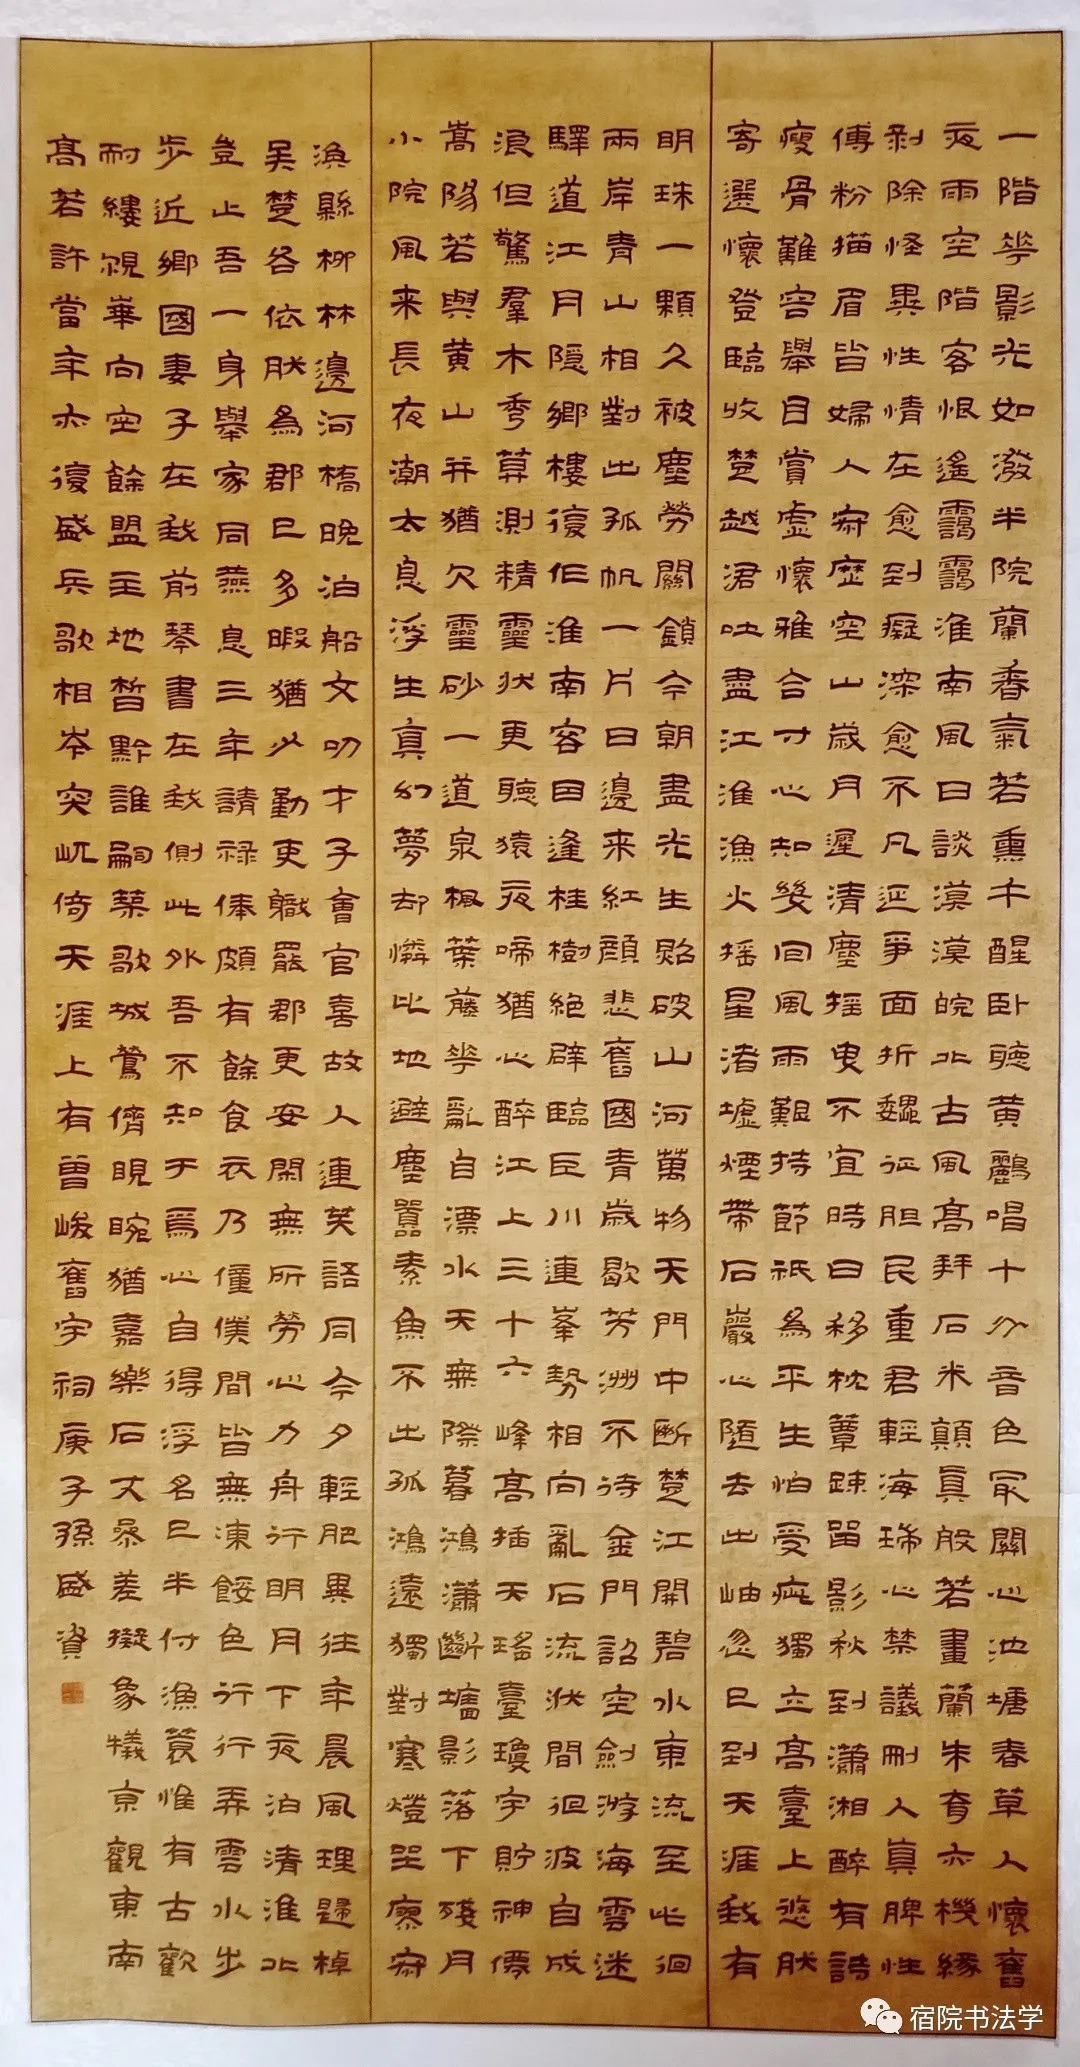 一階花影光如潑半院蘭香氣若熏午醒臥聽黃鸝唱十分音色最關心池塘春草人懷舊
夜雨空階客恨遙靄靄淮南風日談漠漠皖北古風高拜石米顛真般若畫蘭朱育亦機緣
剝除怪異性情在愈到癡深愈不凡廷爭面折魏征胆民重君輕海瑞心禁議刪人真脾性
傅粉描眉皆婦人寂歷空山歲月遲清塵搖曳不宜時日移枕簟踈留影秋到瀟湘醉有詩
瘦骨難容舉目賞虛懷雅合寸心知幾回風雨艱持節祇為平生怕受疵獨立高臺上悠然
寄選懷登臨收楚越浥吐盡江淮漁火搖星渚墟煙帶石巖心隨去出岫忽已到天涯我有
明珠一顆久被塵勞關鎖今朝盡光生照破山河萬物天門中斷楚江開碧水東流至此徊
兩岸青山相對出孤帆一片日邊来紅顏悲舊國青歲歇芳洲不待金門詔空劍游海雲迷
驛道江月隱鄉樓復作淮南客因逢桂樹絕辟臨巨川連峯勢相向亂石流洑間徊波自成
浪但驚羣木秀草測精靈狀更聽猿夜啼猶心醉江上三十六峰高插天瑤臺瓊宇貯神僊
嵩陽若與黃山并猶欠靈砂一道泉楓葉藤花亂自漂水天無際暮鴻瀟斷墻影落下殘月
小院風来長夜潮太息浮生真幻夢却憐此地避塵囂素魚不出孤鴻遠獨對寒燈坐寥寂
渙縣柳林邊河橋晚泊船文叨才子會官喜故人連笑語同今夕輕肥異往年晨風理歸棹
吳楚各依然為郡已多暇猶少勤吏職罷郡更安閑無所勞心力舟行明月下夜泊清淮北
豈止吾一身舉家同燕息三年請祿俸頗有餘食衣乃僮僕間皆無凍餒色行行弄雲水步
步近鄉國妻子在我前琴書在我側此外吾不知于焉心自得浮名已半付漁蓑惟有古歡
耐縷覶華向空餘盟主地皙黔誰嗣築歌城鶯儕睍睆猶嘉樂石丈㬥差擬象犧京觀東南
高若許當年亦復盛兵歌相岑突屼倚天涯上有曾峻舊字祠庚子孫盛資
宿院书法学